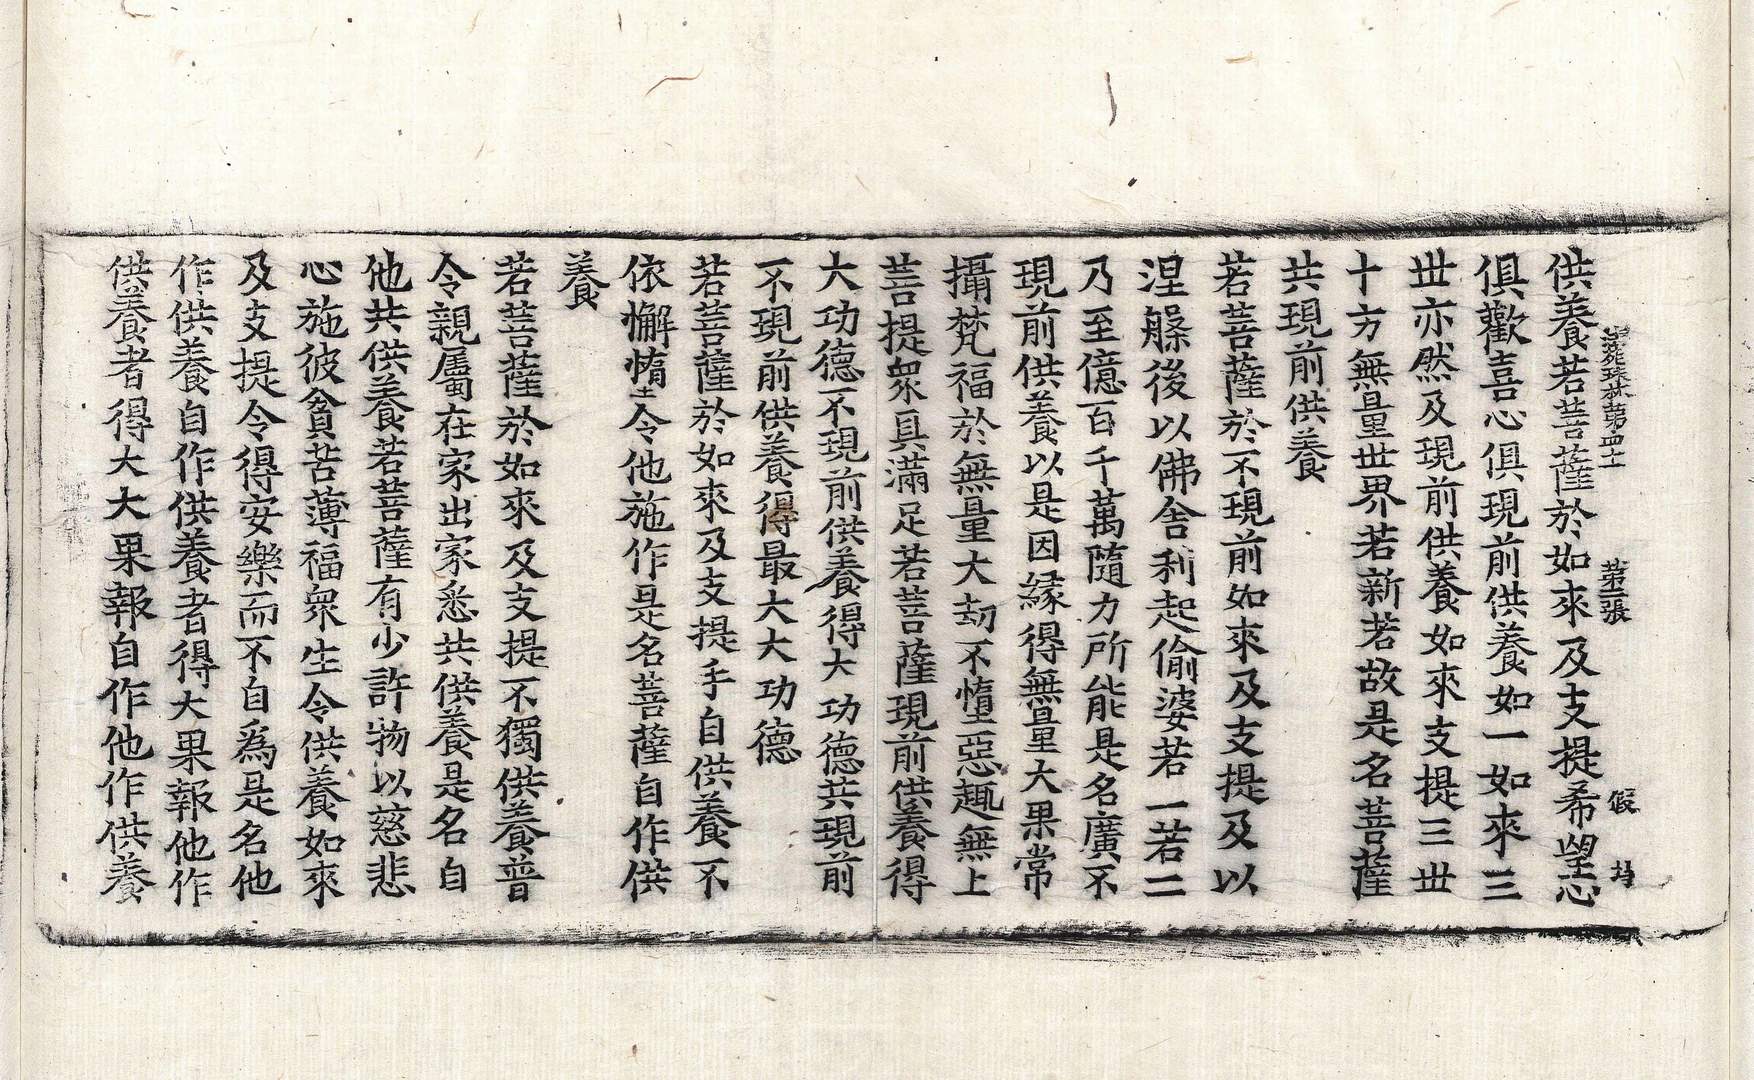 法苑珠林苐四十一　苐二張　假
供養若菩薩於如來及支提希望心
俱歡喜心俱現前供養如一如來三
世亦然及現前供養如來支提三世
十方無量世界若新若故是名菩薩
共現前供養
若菩薩於不現前如來及支提及以
涅槃後以佛舍利起偷婆若一若二
乃至億百千萬隨力所能是名廣不
現前供養以是因緣得無量大果常
攝梵福於無量大劫不墮惡趣無上
菩提衆具滿足若菩薩現前供養得
大功德不現前供養得大功德共現前
不現前供養得最大大功德
若菩薩於如來及支提手自供養不
依懈惰令他施作是名菩薩自作供
養
若菩薩於如來及支提不獨供養普
令親屬在家出家悉共供養是名自
他共供養若菩薩有少許物以慈悲
心施彼貧苦薄福衆生令供養如來
及支提令得安樂而不自爲是名他
作供養自作供養者得大果報他作
供養者得大大果報自作他作供養